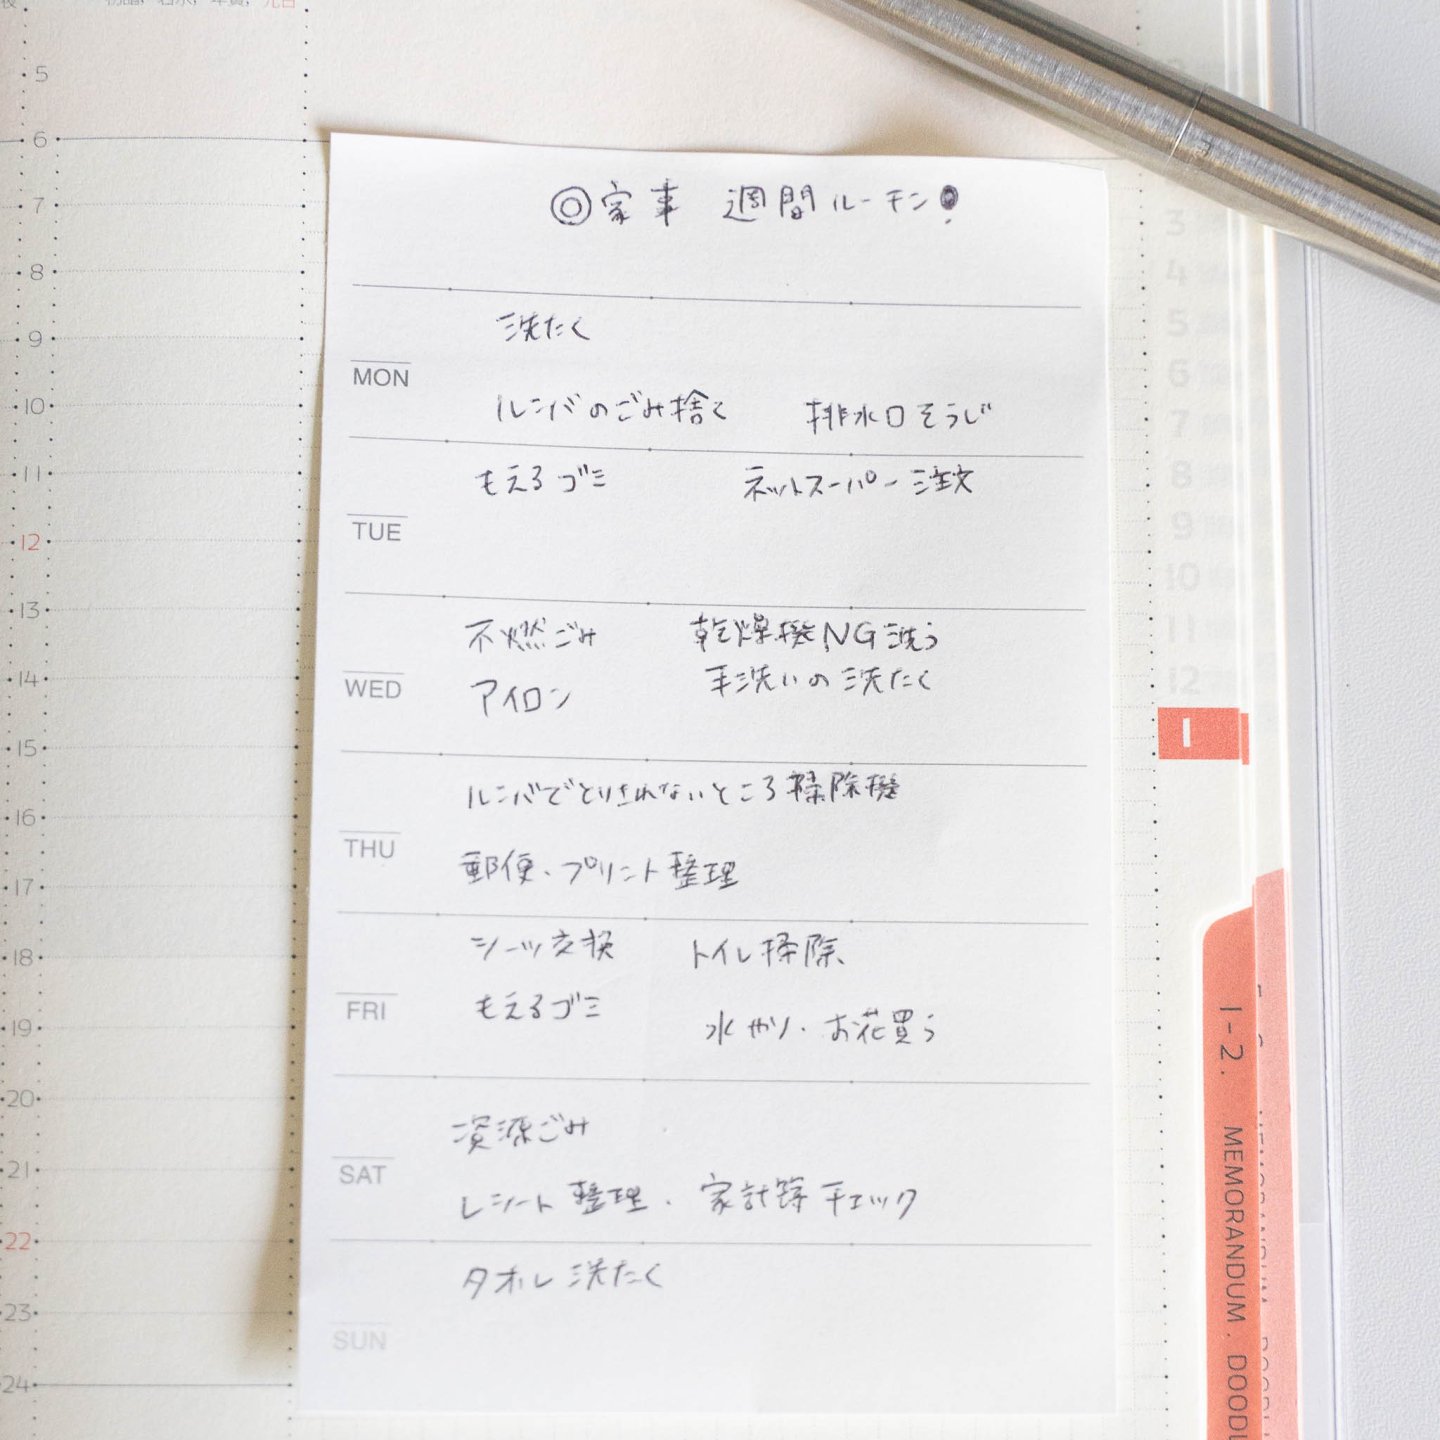 元日
5
6
7
8
9
10
11
12
13
14
15
16
17
18
19
20
21
22
23
24
◎家事 週間ルーチン!
洗たく
MON
ルンバのごみ捨て 排水口そうじ
もえるゴミ ネットスーパー注文
TUE
不燃ごみ 乾燥機NG洗う
手洗いの洗たく
WED
アイロン
ルンバでとりきれないところ掃除機
THU
郵便・プリント整理
シーツ交換 トイレ掃除
FRI
もえるゴミ 水やり・お花買う
資源ごみ
SAT
レシート整理・家計簿チェック
タオル洗たく
SUN
3
4
5
6
7
8
9
10
11
12
1
1-2. MEMORANDUM. DOODL